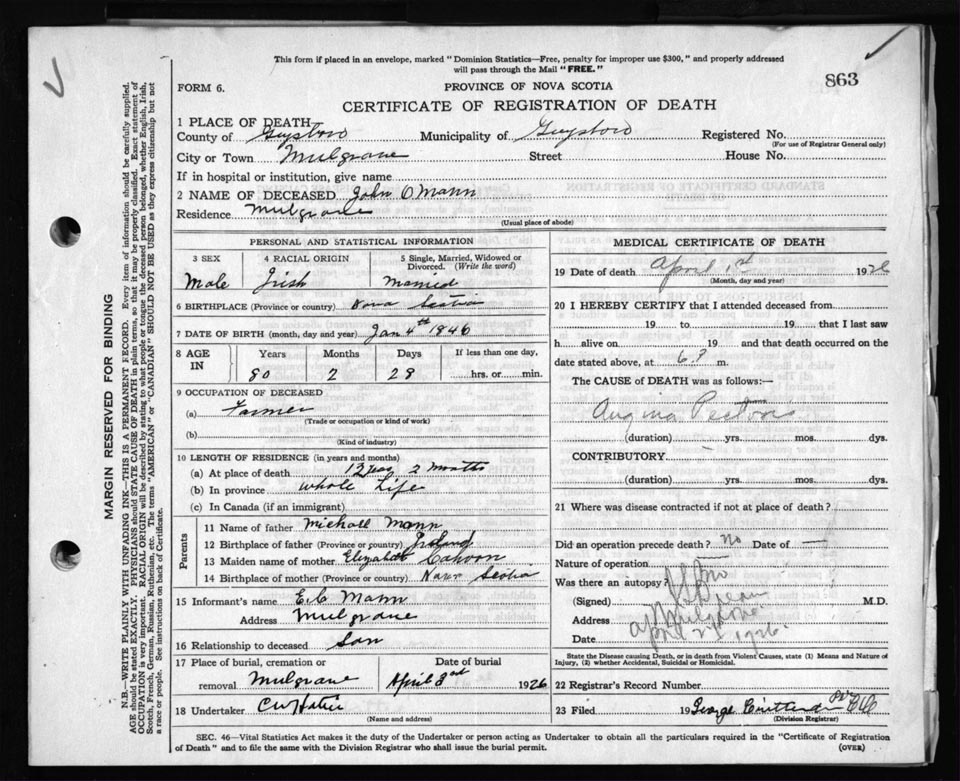 This form if placed in an envelope, marked "Dominion Statistics—Free, penalty for improper use $300," and properly addressed
will pass through the Mail "FREE."
863
FORM 6.
PROVINCE OF NOVA SCOTIA
CERTIFICATE OF REGISTRATION OF DEATH
MARGIN RESERVED FOR BINDING
N.B.—WRITE PLAINLY WITH UNFADING INK—THIS IS A PERMANENT RECORD. Every item of information should be carefully supplied.
AGE should be stated EXACTLY. PHYSICIANS should STATE CAUSE OF DEATH in plain terms, so that it may be properly classified. Exact statement of
OCCUPATION is very important. RACIAL ORIGIN will be described by stating to what people or tongue the deceased person belonged, whether English, Irish,
Scotch, French, German, Russian, Ruthenian, etc. The terms "AMERICAN" or "CANADIAN" SHOULD NOT BE USED as they express citizenship but not
a race or people. See instructions on back of Certificate.
1 PLACE OF DEATH
County of Guysboro Municipality of Guysboro Registered No.
(For use of Registrar General only)
City or Town Mulgrave Street House No.
If in hospital or institution, give name
2 NAME OF DECEASED John O Mann
Residence Mulgrave
(Usual place of abode)
PERSONAL AND STATISTICAL INFORMATION
3 SEX 4 RACIAL ORIGIN 5 Single, Married, Widowed or
Divorced. (Write the word)
Male Irish Married
6 BIRTHPLACE (Province or country) Nova Scotia
7 DATE OF BIRTH (month, day and year) Jan 4th 1846
8 AGE IN Years Months Days If less than one day,
80 2 28 hrs. or min.
9 OCCUPATION OF DECEASED
(a) Farmer
(Trade or occupation or kind of work)
(b)
(Kind of industry)
10 LENGTH OF RESIDENCE (in years and months)
(a) At place of death 12 years 2 months
(b) In province whole Life
(c) In Canada (if an immigrant)
Parents
11 Name of father Michall Mann
12 Birthplace of father (Province or country) Ireland
13 Maiden name of mother Elizabeth
14 Birthplace of mother (Province or country) Nova Scotia
15 Informant's name E C Mann
Address Mulgrave
16 Relationship to deceased Son
17 Place of burial, cremation or Date of burial
removal Mulgrave April 3rd 1926
18 Undertaker
(Name and address)
MEDICAL CERTIFICATE OF DEATH
19 Date of death April 1st 1926
(Month, day and year)
20 I HEREBY CERTIFY that I attended deceased from
19 to 19 that I last saw
h alive on 19 and that death occurred on the
date stated above, at 6 P m.
The CAUSE of DEATH was as follows:—
Angina Pectoris
(duration) yrs. mos. dys.
CONTRIBUTORY
(duration) yrs. mos. dys.
21 Where was disease contracted if not at place of death?
Did an operation precede death? No Date of —
Nature of operation
Was there an autopsy? No
(Signed) M.D.
Address Mulgrave
Date April 2nd 1926
State the Disease causing Death, or in death from Violent Causes, state (1) Means and Nature of
Injury, (2) whether Accidental, Suicidal or Homicidal.
22 Registrar's Record Number
23 Filed 19 George
(Division Registrar)
SEC. 46—Vital Statistics Act makes it the duty of the Undertaker or person acting as Undertaker to obtain all the particulars required in the "Certificate of Registration
of Death" and to file the same with the Division Registrar who shall issue the burial permit.
(OVER)